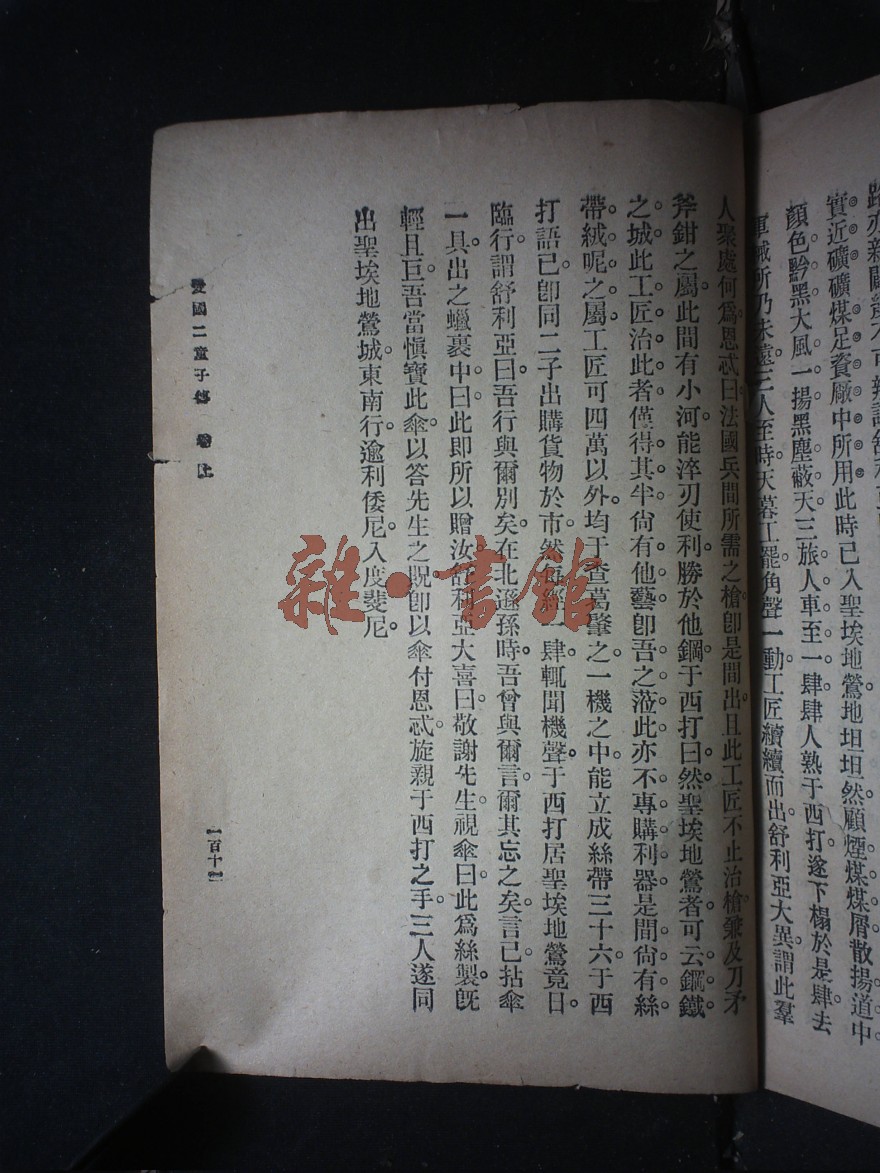 實近礦礦煤足資廠中所用此時已入聖埃地鶯地坦坦然顧煙煤煤屑散揚道中
顏色黔黑大風一揚黑塵蔽天三旅人車至一肆肆人熟于西打遂下榻於是肆去
軍械所乃未遠三人至時天暮工罷角聲一動工匠續續而出舒利亞大異謂此羣
人聚處何爲恩忒曰法國兵間所需之槍卽是間出且此工匠不止治槍兼及刀矛
斧鉗之屬此間有小河能淬刃使利勝於他鋼于西打曰然聖埃地鶯者可云鋼鐵
之城此工匠治此者僅得其半尙有他藝卽吾之蒞此亦不專購利器是間尙有絲
帶絨呢之屬工匠可四萬以外均于查葛肇之一機之中能立成絲帶三十六于西
打語已卽同二子出購貨物於市然每經一肆輒聞機聲于西打居聖埃地鶯竟日
臨行謂舒利亞曰吾行與爾別矣在北遜孫時吾曾與爾言爾其忘之矣言已拈傘
一具出之蠟裹中曰此即所以贈汝舒利亞大喜曰敬謝先生視傘曰此爲絲製旣
輕且巨吾當愼寶此傘以答先生之貺卽以傘付恩忒旋親于西打之手三人遂同
出聖埃地鶯城東南行逾利倭尼入度斐尼
愛國二童子傳 卷上
一百十二
雜·書館